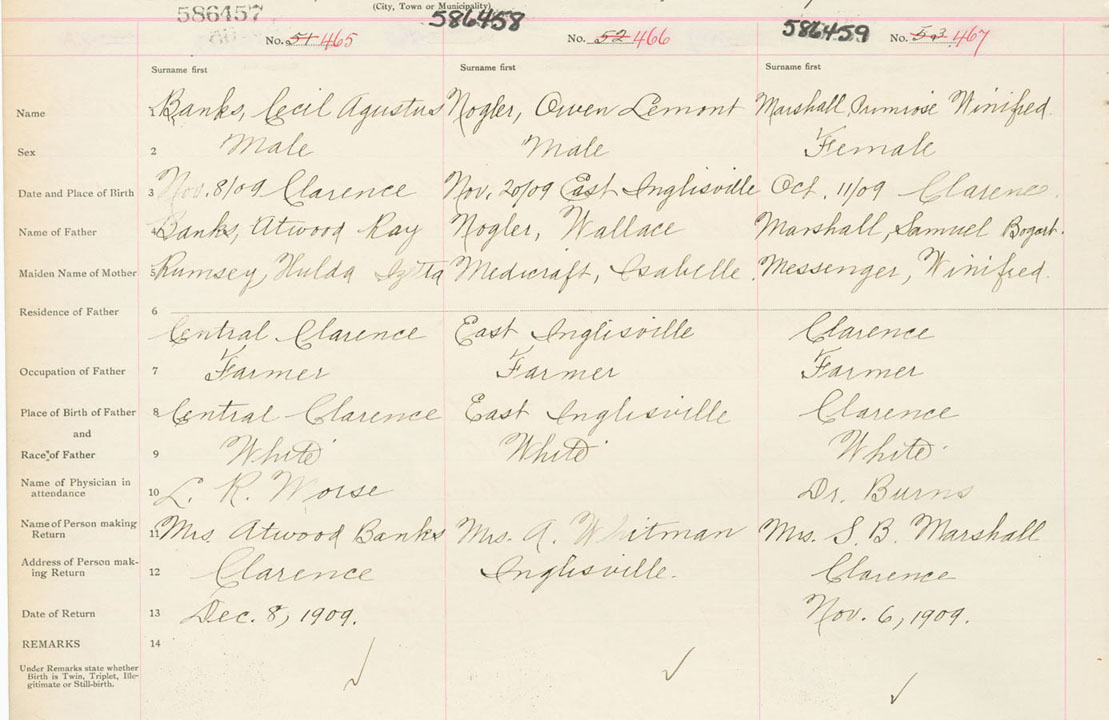 (City, Town or Municipality)
586457 586458 586459
No. 51 465 No. 52 466 No. 53 467
Surname first Surname first Surname first
Name 1 Banks, Cecil Agustus Nogler, Owen Lemont Marshall, Primrose Winifred.
Sex 2 Male Male Female
Date and Place of Birth 3 Nov. 8/09 Clarence Nov. 20/09 East Inglisville Oct. 11/09 Clarence.
Name of Father 4 Banks, Atwood Ray Nogler, Wallace Marshall, Samuel Bogart.
Maiden Name of Mother 5 Rumsey, Hulda Medicraft, Isabelle Messenger, Winifred.
Residence of Father 6
Central Clarence East Inglisville Clarence
Occupation of Father 7 Farmer Farmer Farmer
Place of Birth of Father 8 Central Clarence East Inglisville Clarence
and
Race of Father 9 White White White
Name of Physician in
attendance 10 L. R. Morse Dr. Burns
Name of Person making
Return 11 Mrs Atwood Banks Mrs. A. Whitman Mrs. S. B. Marshall
Address of Person mak-
ing Return 12 Clarence Inglisville. Clarence
Date of Return 13 Dec. 8, 1909. Nov. 6, 1909.
REMARKS 14
Under Remarks state whether
Birth is Twin, Triplet, Ille-
gitimate or Still-birth.